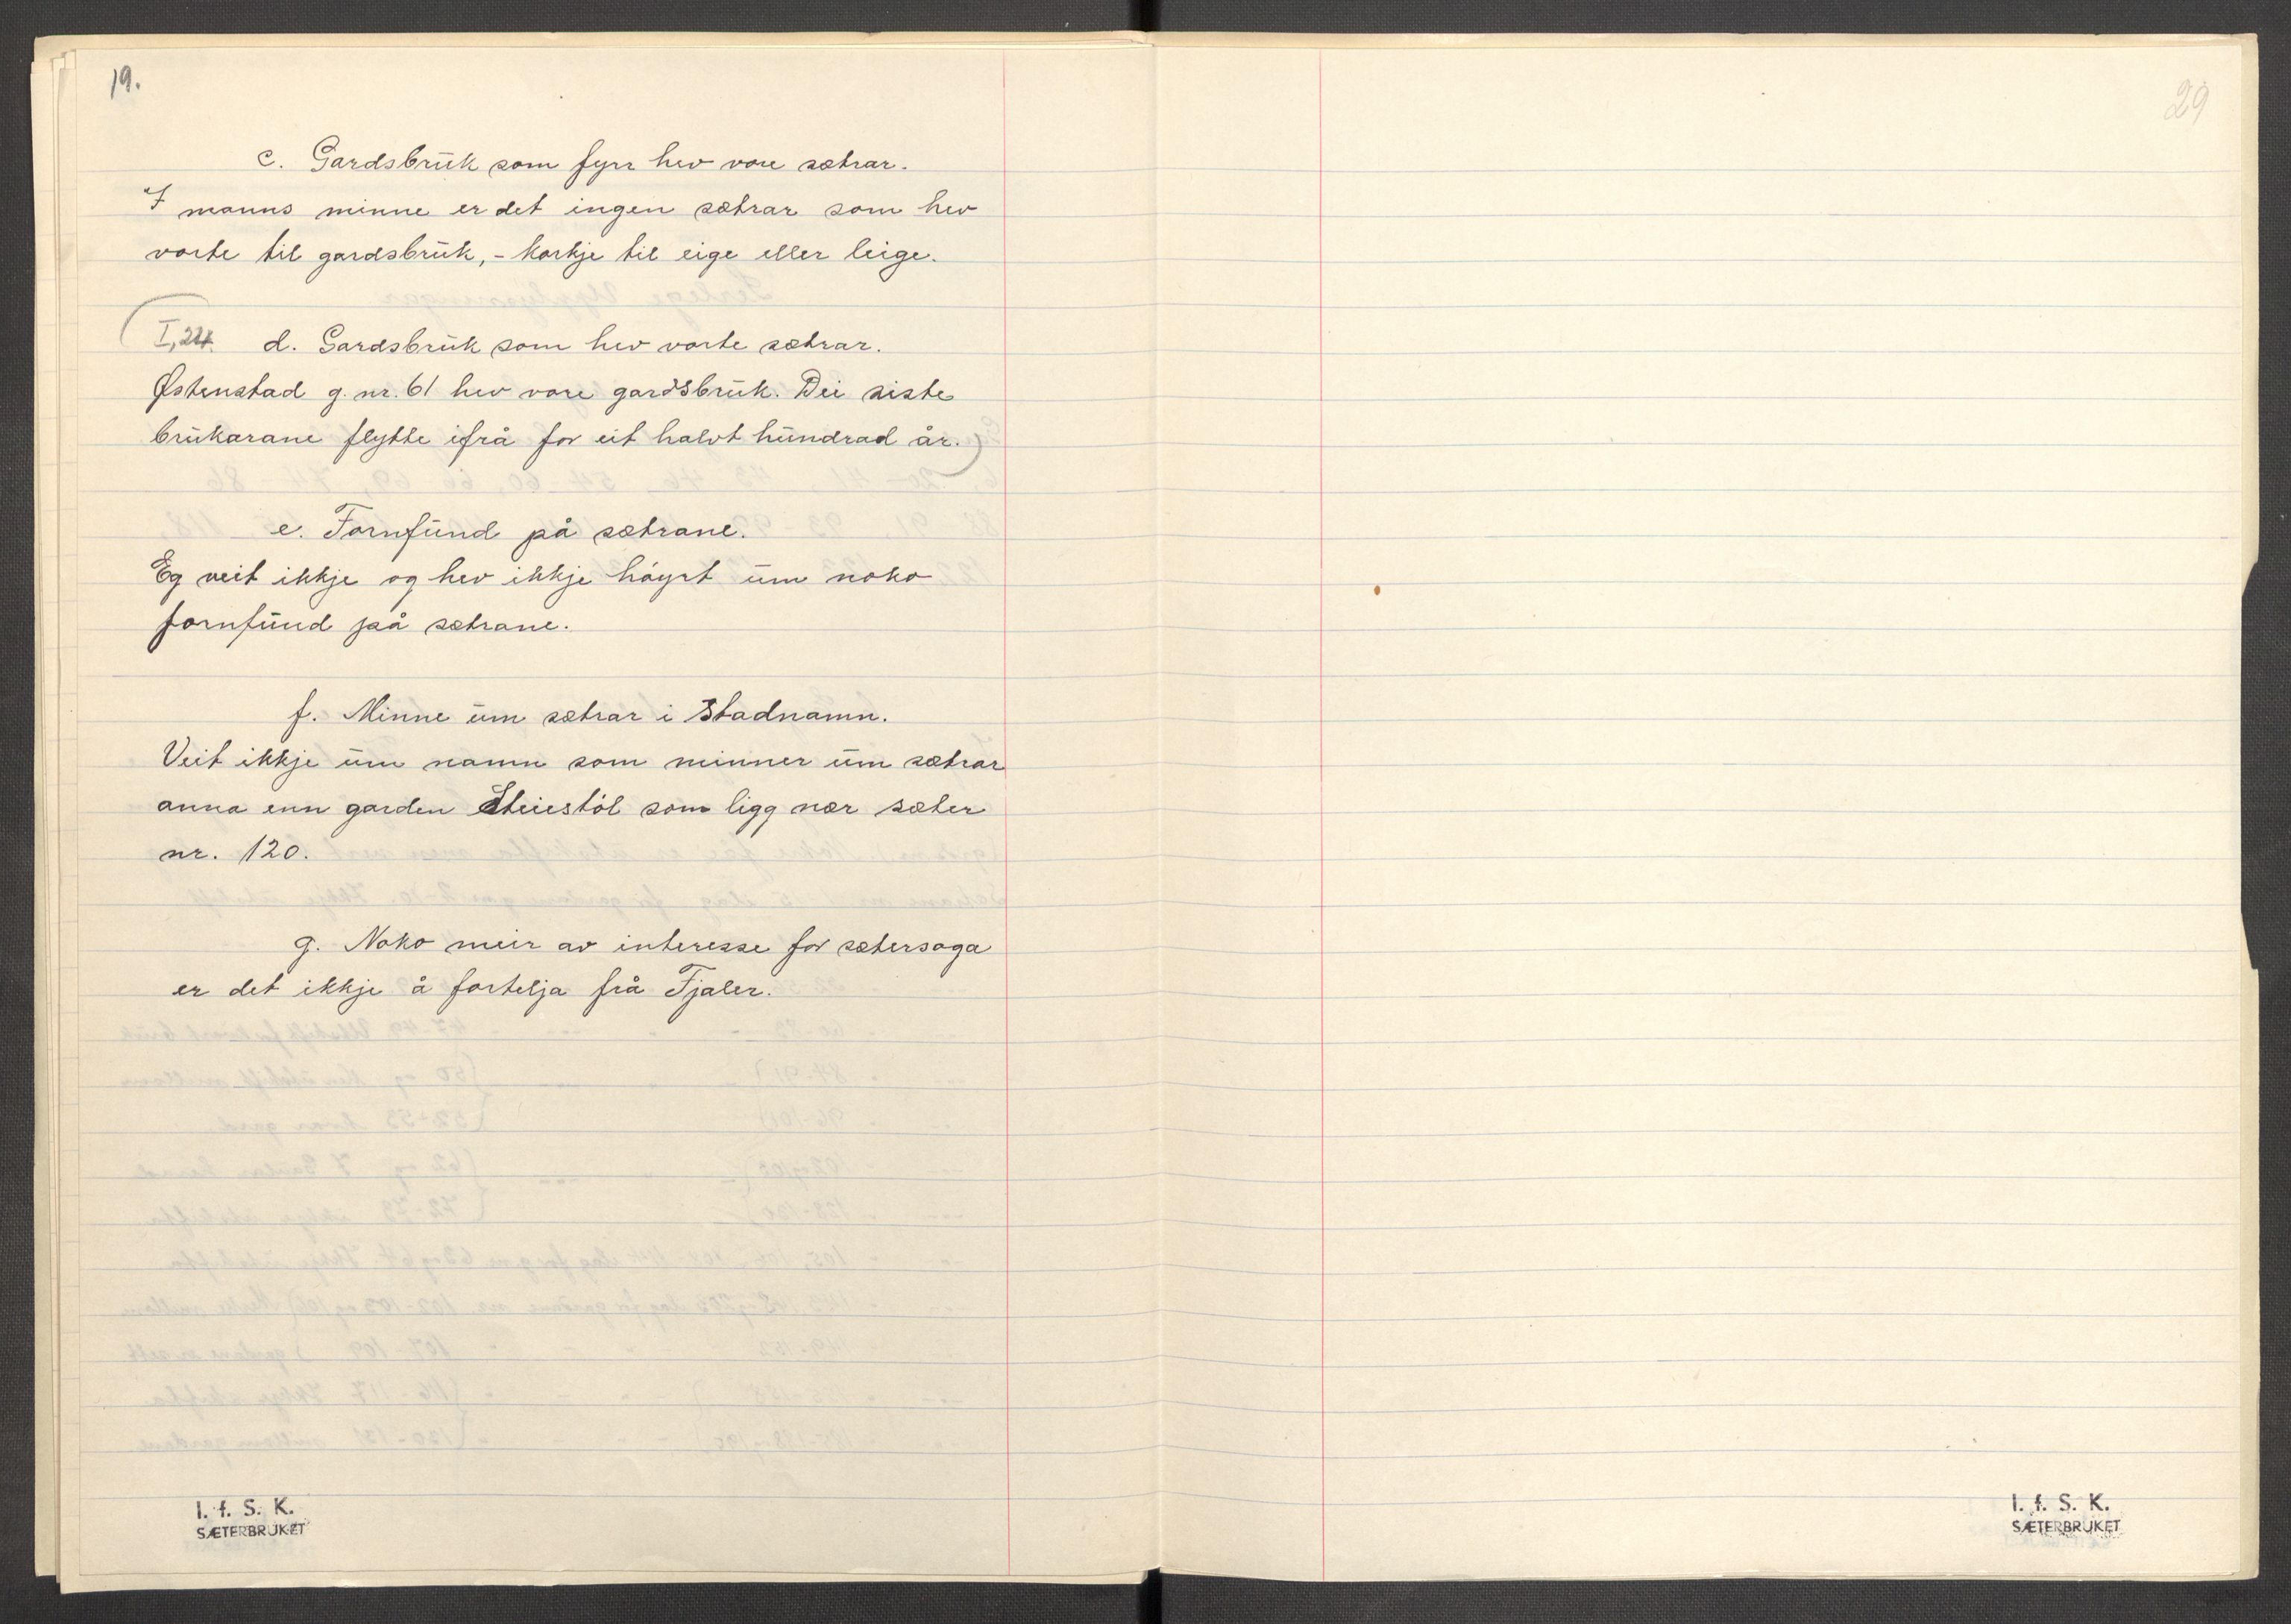 19.
29
c. Gardsbruk som fyrr hev vore sætrar.
I manns minne er det ingen sætrar som hev
vorte til gardsbruk, - korkje til eige eller leige.
I, 24. d. Gardsbruk som hev vorte sætrar.
Østenstad g. nr. 61 hev vore gardsbruk. Dei siste
brukarane flytte ifrå for eit halvt hundrad år.)
e. Fornfund på sætrane.
Eg veit ikkje og hev ikkje høyrt um noko
fornfund på sætrane.
f. Minne um sætrar i Stadnamn.
Veit ikkje um namn som minner um sætrar
anna enn garden Steiestøl som ligg nær sæter
nr. 120.
g. Noko meir av interesse for sætersoga
er det ikkje å fortelja frå Fjaler.
I. f. S. K.
SÆTERBRUKET
I. f. S. K.
SÆTERBRUKET